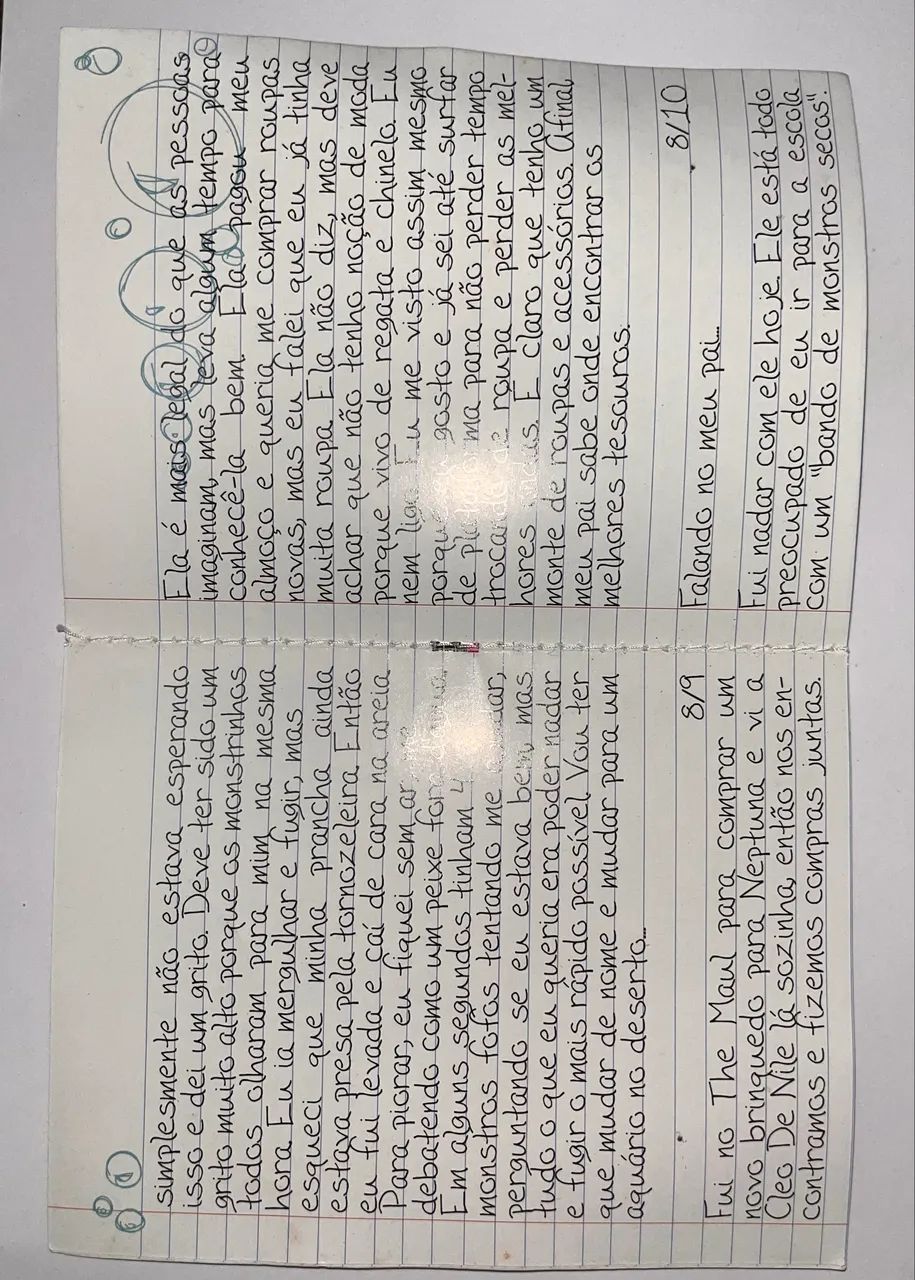 simplesmente não estava esperando
isso e dei um grito. Deve ter sido um
grito muito alto porque os monstrinhos
todos olharam para mim na mesma
hora Eu ia mergulhar e fugir, mas
esqueci que minha prancha ainda
estava presa pela tornozeleira Então
eu fui levada e caí de cara na areia
Para piorar, eu fiquei sem ar
debatendo como um peixe fora
Em alguns segundos tinham 4
monstros fofos tentando me
perguntando se eu estava bem, mas
tudo o que eu queria era poder nadar
e fugir o mais rápido possível. Vou ter
que mudar de nome e mudar para um
aquário no deserto...
8/9
Fui no The Maul para comprar um
novo brinquedo para Neptuna e vi a
Cleo De Nile lá sozinha, então nos en-
contramos e fizemos compras juntas.
Ela é mais legal do que as pessoas
imaginam, mas leva algum tempo para
conhecê-la bem. Ela pagou meu
almoço e queria me comprar roupas
novas, mas eu falei que eu já tinha
muita roupa Ela não diz, mas deve
achar que não tenho noção de moda
porque vivo de regata e chinelo. Eu
nem me visto assim mesmo
gosto e já sei até surfar
de para não perder tempo
de roupa e perder as mel-
hores É claro que tenho um
monte de roupas e acessórios. Afinal,
meu pai sabe onde encontrar os
melhores tesouros.
8/10
Falando no meu pai...
Fui nadar com ele hoje. Ele está todo
preocupado de eu ir para a escola
com um "bando de monstros secos".